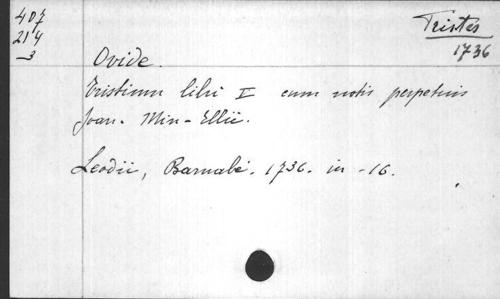 407
214
3
Tristes
1736
Ovide.
Tristium libri V cum notis perpetuis
Joan. Min-Ellii.
Leodii, Barnabé. 1736. in-16.